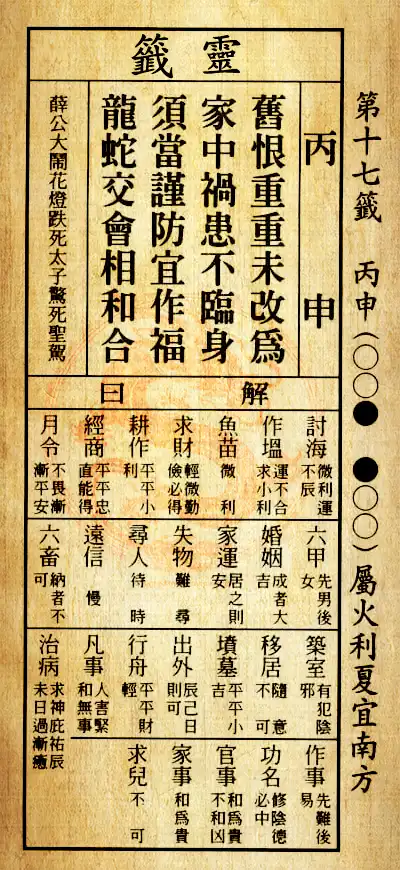 第十七籤 丙申(○○● ●○○)屬火利夏宜南方
靈籤
丙申
舊恨重重未改為
家中禍患不臨身
須當謹防宜作福
龍蛇交會相和合
薛公大鬧花燈跌死太子驚死聖駕
解曰
討海 微利運不辰
作塭 運不合求小利
魚苗 微利
求財 輕微勤儉必得
耕作 平平小利
經商 平平忠直能得
月令 不畏漸漸平安
六甲 先男後女
婚姻 成者大吉
家運 居之則安
失物 難尋
尋人 待時
遠信 慢
六畜 納者不可
築室 有犯陰邪
移居 隨意不可
墳墓 平平小吉
出外 辰己日則可
行舟 平平財輕
凡事 人害緊和無事
治病 求神庇祐辰未日過漸癒
作事 先難後易
功名 修陰德必中
官事 和為貴不和凶
家事 和為貴
求兒 不可